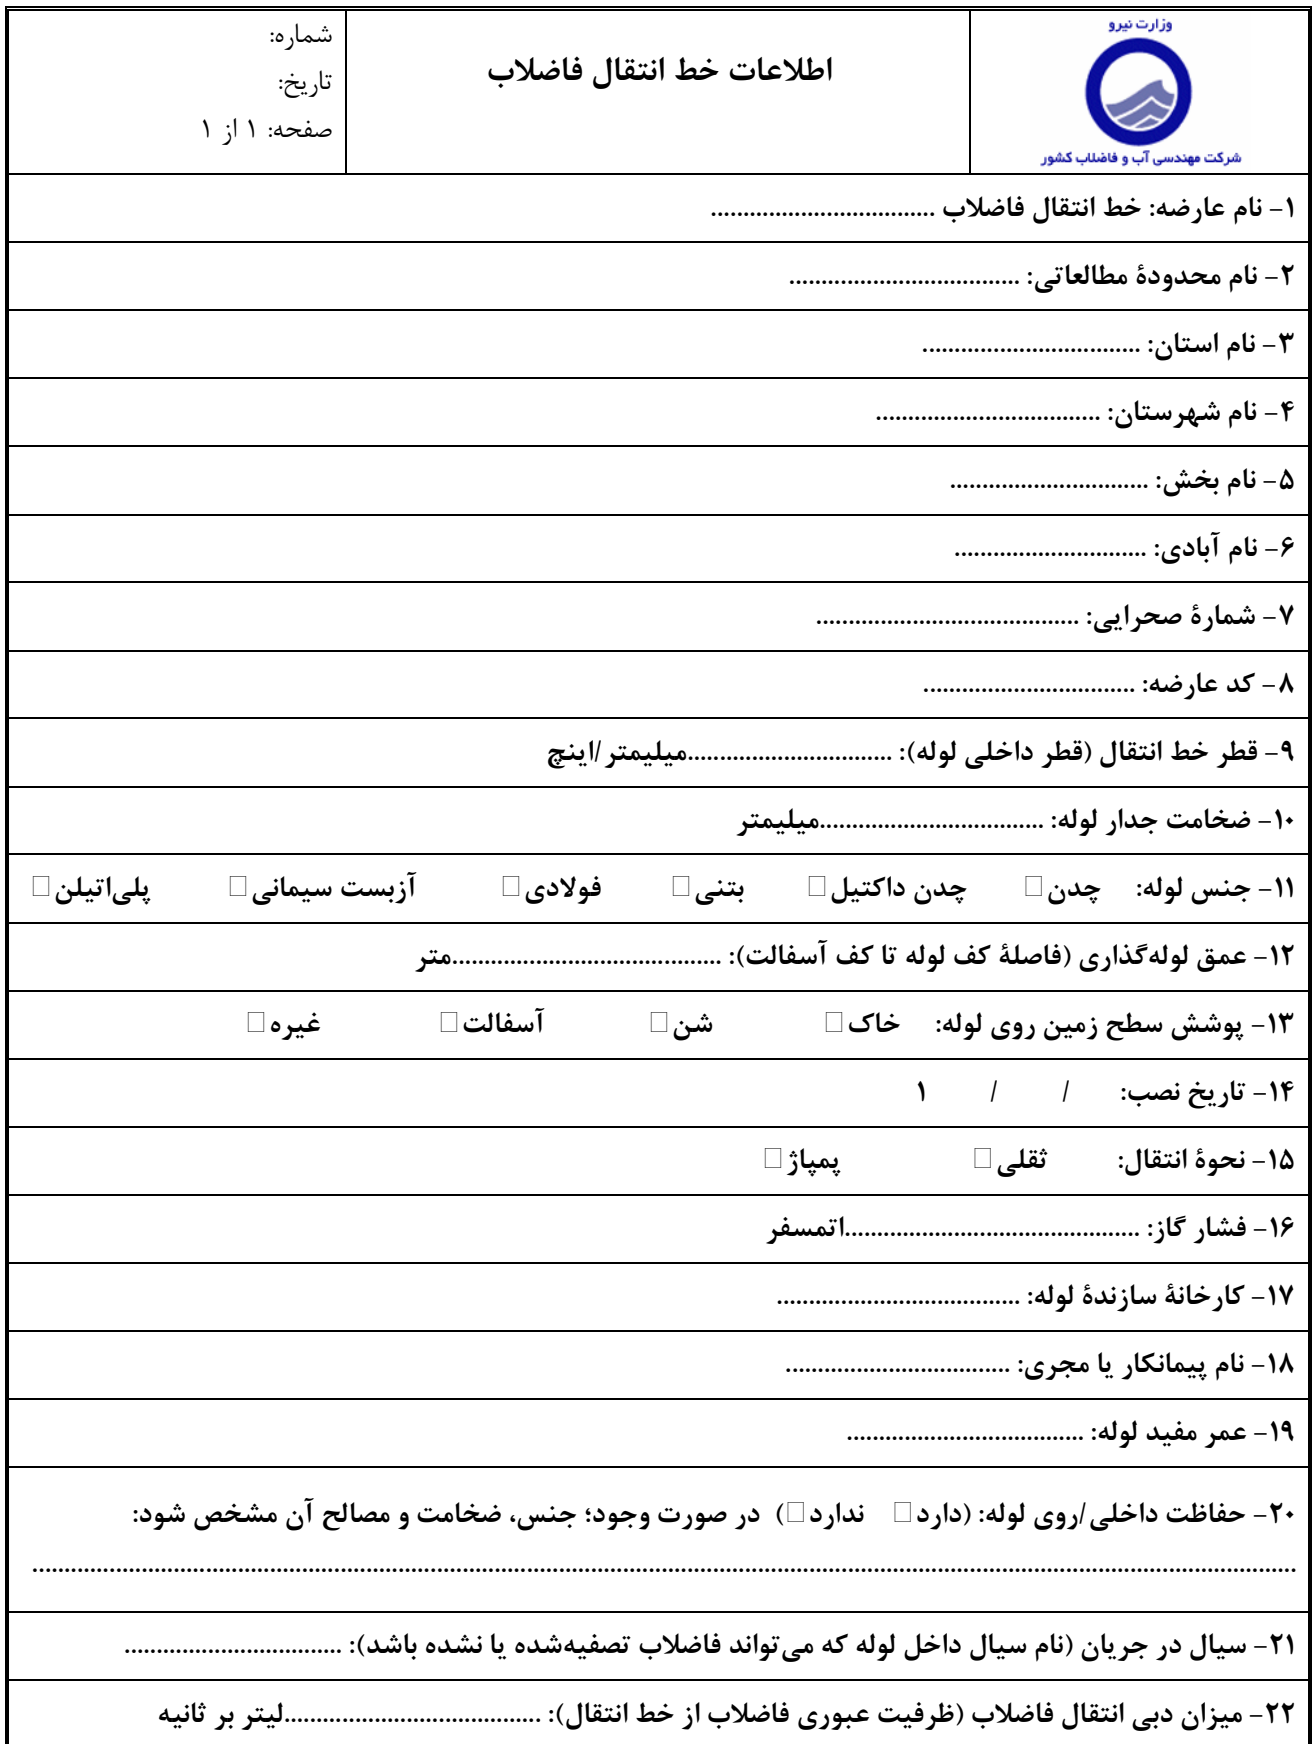 وزارت نیرو
شرکت مهندسی آب و فاضلاب کشور
اطلاعات خط انتقال فاضلاب
شماره:
تاریخ:
صفحه: ۱ از ۱
۱- نام عارضه: خط انتقال فاضلاب ...................................
۲- نام محدودهٔ مطالعاتی: ...................................
۳- نام استان: ..................................
۴- نام شهرستان: ...................................
۵- نام بخش: ...............................
۶- نام آبادی: ..............................
۷- شمارهٔ صحرایی: .........................................
۸- کد عارضه: .................................
۹- قطر خط انتقال (قطر داخلی لوله): ................................میلیمتر/اینچ
۱۰- ضخامت جدار لوله: ...................................میلیمتر
۱۱- جنس لوله: چدن□ چدن داکتیل□ بتنی□ فولادی□ آزبست سیمانی□ پلی‌اتیلن□
۱۲- عمق لوله‌گذاری (فاصلهٔ کف لوله تا کف آسفالت): ..........................................متر
۱۳- پوشش سطح زمین روی لوله: خاک□ شن□ آسفالت□ غیره□
۱۴- تاریخ نصب: / / ۱
۱۵- نحوهٔ انتقال: ثقلی□ پمپاژ□
۱۶- فشار گاز: ..............................................اتمسفر
۱۷- کارخانهٔ سازندهٔ لوله: ......................................
۱۸- نام پیمانکار یا مجری: ...................................
۱۹- عمر مفید لوله: .....................................
۲۰- حفاظت داخلی/روی لوله: (دارد□ ندارد□) در صورت وجود؛ جنس، ضخامت و مصالح آن مشخص شود:
....................................................................................................................................................................................................
۲۱- سیال در جریان (نام سیال داخل لوله که می‌تواند فاضلاب تصفیه‌شده یا نشده باشد): ..................................
۲۲- میزان دبی انتقال فاضلاب (ظرفیت عبوری فاضلاب از خط انتقال): ........................................لیتر بر ثانیه